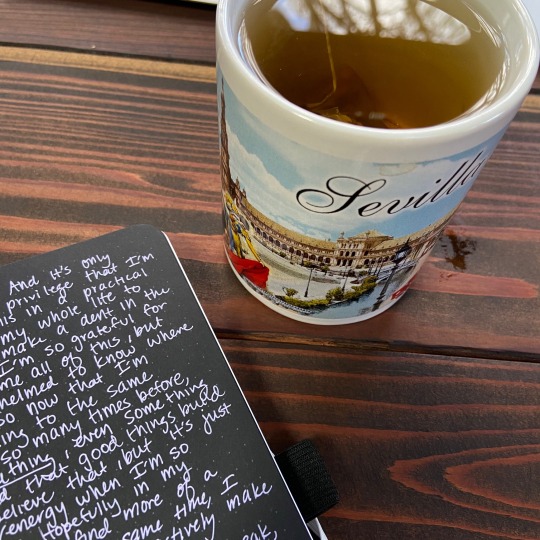 Sevilla
And it's only
privilege that I'm
his in a practical
my whole life to
make a dent in the
I'm so grateful for
me all of this, but
helmed to know where
so now that I'm
ing to the same
so many times before,
thing, even something
d that good things build
elieve that, but it's just
energy when I'm so
Hopefully in my
find more of a
same time, I
ctively make
eak,